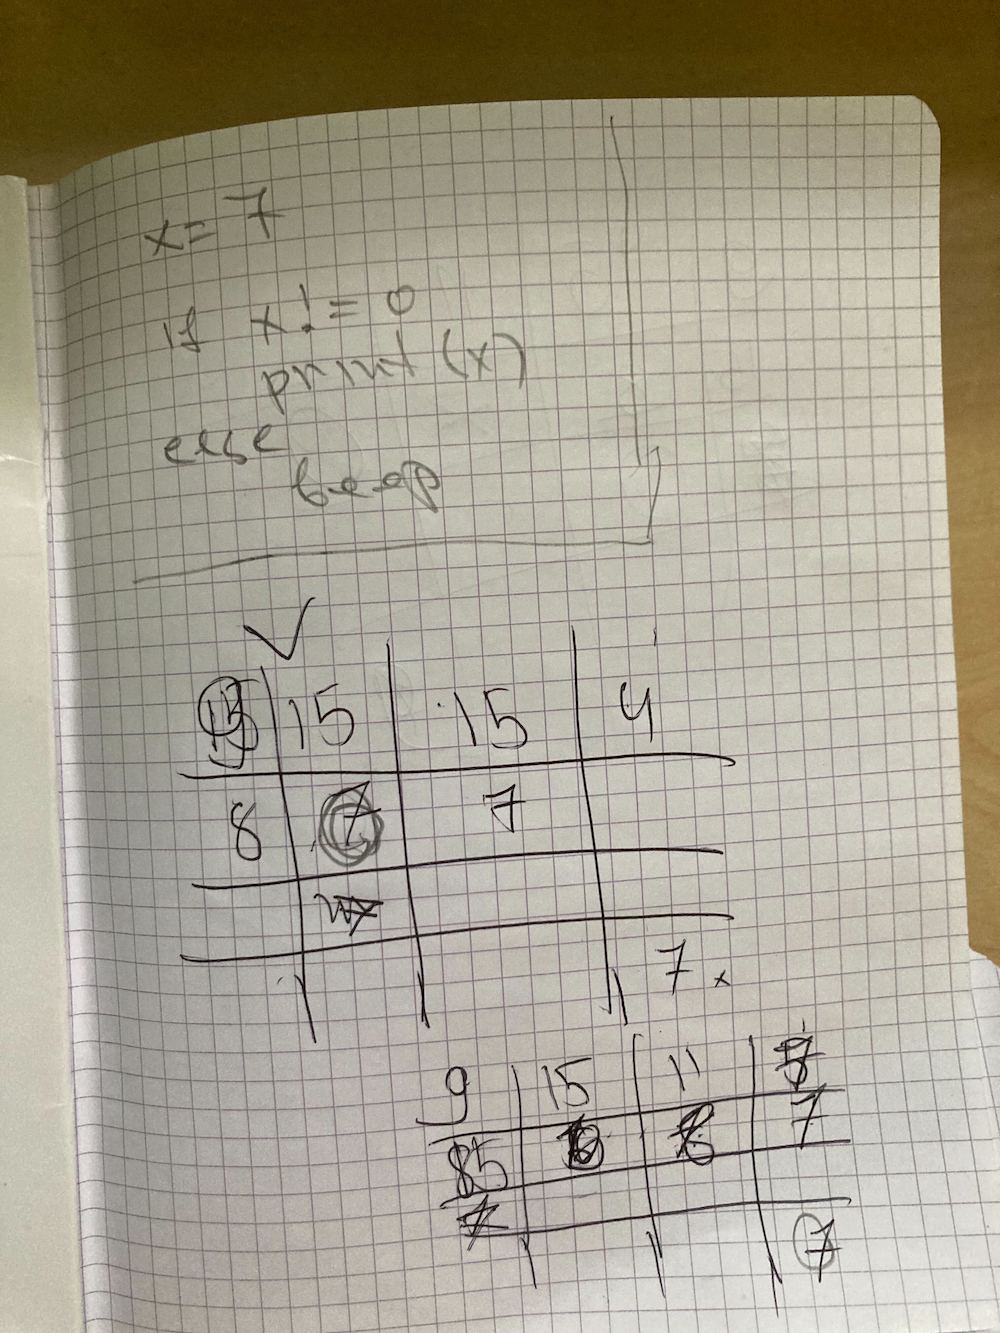 x = 7
if x != 0
print (x)
else
beep
15 15 4
8 7 7
7 x
9 15 11
85 7
7